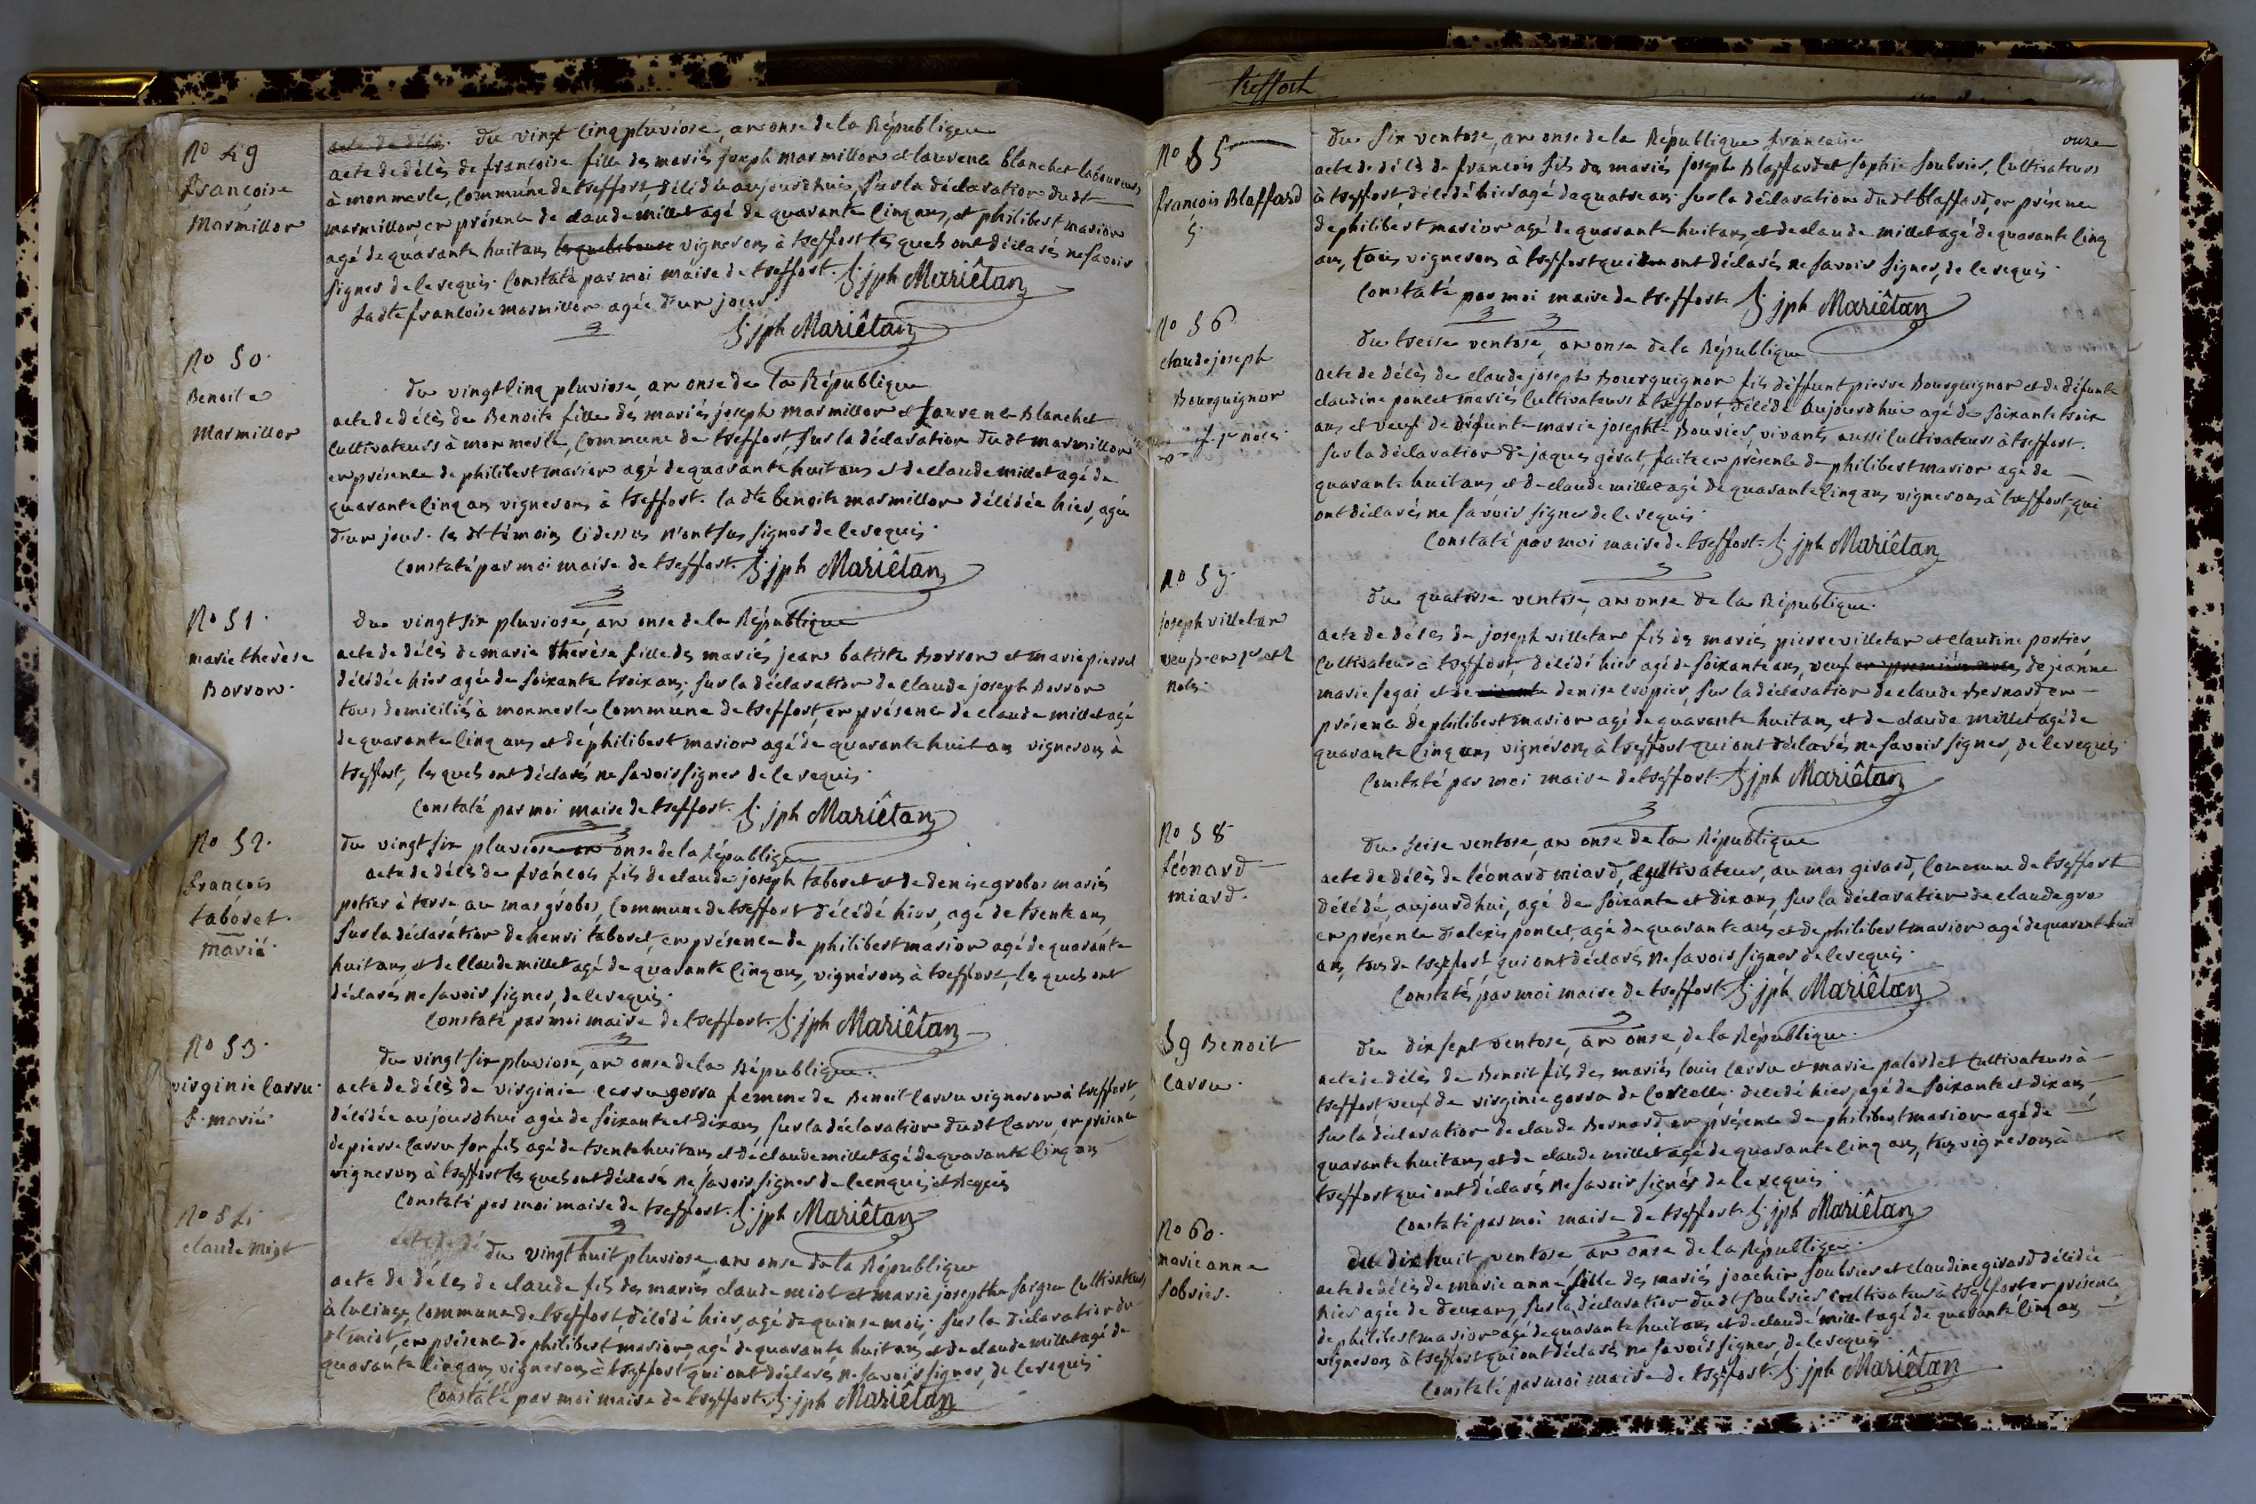 N.o 49
françoise
Marmillon
acte de décè du vingt cinq pluviose, an onse de la République
acte de décès de françoise fille des mariés joseph marmillon et laurence blanchet laboureurs
à monmerle, Commune de treffort, décédée aujourdhui, sur la déclaration dudt
marmillon en présence de claude millet agé de quarante cinq ans, et philibert marion
agé de quarante huit ans vignerons à treffort lesquels ont déclarés ne savoir
signer de le requis. Constaté par moi maire de treffort. jph Mariêtan
ladte françoise marmillon agée d'un jour.
jph Mariêtan
N.o 50.
Benoite
Marmillon
du vingt cinq pluviose, an onse de la République
acte de décès de Benoite fille des mariés joseph marmillon et Laurence Blanchet
Cultivateurs à monmerle, Commune de treffort, sur la déclaration dudt marmillon
en présence de philibert marion agé de quarante huit ans et de claude millet agé de
quarante cinq ans vignerons à treffort. la dte benoite marmillon décédée hier, agée
d'un jour. les dt témoins ci dessus n'ont sus signer de le requis.
Constaté par moi maire de treffort. jph Mariêtan
N.o 51.
marie thérèse
Borron.
du vingt six pluviose, an onse de la République
acte de décès de marie thérèse fille des mariés jean batiste Borron et marie pierrel
décédée hier agée de soixante troix ans, sur la déclaration de claude joseph Borron
tous domiciliés à monmerle Commune de treffort, en présence de claude millet agé
de quarante cinq ans et de philibert marion agé de quarante huit ans vignerons à
treffort, lesquels ont déclarés ne savoir signer de le requis.
Constaté par moi maire de treffort. jph Mariêtan
N.o 52.
françois
taboret.
marié
du vingt six pluviose an onse de la République
acte de décès de françois fils de claude joseph taboret et de denise grobos mariés
potier à terre au mas grobos, Commune de treffort décédé hier, agé de trente ans,
sur la déclaration de henri taboret, en présence de philibert marion agé de quarante
huit ans et de claude millet agé de quarante cinq ans, vignerons à treffort, lesquels ont
déclarés ne savoir signer, de le requis.
Constaté par moi maire de treffort. jph Mariêtan
N.o 53.
virginie Carru.
f. marié
du vingt six pluviose, an onse de la République.
acte de décès de virginie carru gorra femme de Benoit Carru vigneron à treffort,
décédée aujourdhui agée de soixante et dix ans, sur la déclaration dudt Carru, en présence
de pierre Carru son fils agé de trente huit ans et de claude millet agé de quarante cinq ans
vignerons à treffort lesquels ont déclarés ne savoir signer de le enquis et requis
Constaté par moi maire de treffort. jph Mariêtan
N.o 54.
claude miot
acte de dé du vingt huit pluviose, an onse de la République
acte de décès de claude fils des mariés claude miot et marie josephte Cultivateurs
à lucinge, Commune de treffort, décédé hier, agé de quinse mois. sur la déclaration du
dt miot, en présence de philibert marion agé de quarante huit ans, et de claude millet agé de
quarante cinq ans, vignerons à treffort qui ont déclarés ne savoir signer, de le requis.
Constaté par moi maire de treffort. jph Mariêtan
treffort
onze
N.o 55
françois Blaffard
5.
du six ventose, an onse de la République françoise
acte de décè de françois fils des mariés joseph Blaffard et Sophie soubrier, Cultivateurs
à treffort, décédé hier agé de quatre ans. sur la déclaration dudt blaffard, en présence
de philibert marion agé de quarante huit ans, et de claude millet agé de quarante cinq
ans, tous vignerons à treffort qui ont déclarés ne savoir signer, de le requis.
Constaté par moi maire de treffort. jph Mariêtan
N.o 56
claude joseph
Bourguignon
du treise ventose, an onse de la République
acte de décès de claude joseph Bourguignon fils deffunt pierre Bourguignon et de défunte
claudine poncet mariés Cultivateurs à treffort, décédé aujourdhui agé de soixante troix
ans et veuf de défunte marie josephte Bouvier, vivants aussi Cultivateurs à treffort.
sur la déclaration de jaques gérat, faite en présence de philibert marion agé de
quarante huit ans, et de claude millet agé de quarante cinq ans vignerons à treffort, qui
ont déclarés ne savoir signer de le requis.
Constaté par moi maire de treffort. jph Mariêtan
N.o 57.
joseph villetan
veuf en 1er et 2
noces.
du quatorse ventose, an onse de la République.
acte de décès de joseph villetan fils des mariés pierre villetan et claudine portier,
Cultivateur à treffort, décédé hier agé de soixante ans, veuf en premières noces, de jeanne
marie segai et de denise cropier, sur la déclaration de claude Bernard en
présence de philibert marion agé de quarante huit ans, et de claude millet agé de
quarante cinq ans, vignerons à treffort qui ont déclarés ne savoir signer, de le requis.
Constaté par moi maire de treffort. jph Mariêtan
N.o 58
léonard
miard.
du seise ventose, an onse de la République
acte de décès de léonard miard, Cultivateur, au mas girard, Commune de treffort
décédé aujourdhui, agé de soixante et dix ans, sur la déclaration de claude gro
en présence d'alexis poncet, agé de quarante ans, et de philibert marion agé de quarante huit
ans, tous de treffort, qui ont déclarés ne savoir signer de le requis.
Constatés par moi maire de treffort. jph Mariêtan
59 Benoit
Carru.
du dix sept ventose, an onse, de la République.
acte de décès de Benoit fils des mariés louis Carru et marie Cultivateurs à
treffort, veuf de virginie gorra de Corcelle. décédé hier, agé de soixante et dix ans
sur la déclaration de claude Bernard en présence de philibert marion agé de
quarante huit ans, et de claude millet agé de quarante cinq ans, tous vignerons à
treffort qui ont déclarés ne savoir signér de le requis.
Constaté par moi maire de treffort. jph Mariêtan
N.o 60.
marie anne
Sobrier.
du dix huit ventose an onse de la République.
acte de décès de marie anne fille des mariés joachin soubrier et claudine girard décédée
hier agée de deux ans, sur la déclaration du dt soubrier Cultivateur à treffort en présence
de philibert marion agé de quarante huit ans et de claude millet agé de quarante cinq ans
vignerons à treffort qui ont déclarés ne savoir signer, de le requis.
Constaté par moi maire de treffort. jph Mariêtan